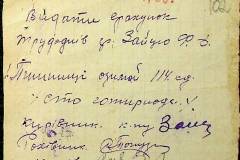 102
Видати в рахунок
трудоднів гр. Зайцю Ф. З.
Пшениці озимої 114 кг.
/сто чотирнадц./
Керівник к-пу Заяц
Рахівник